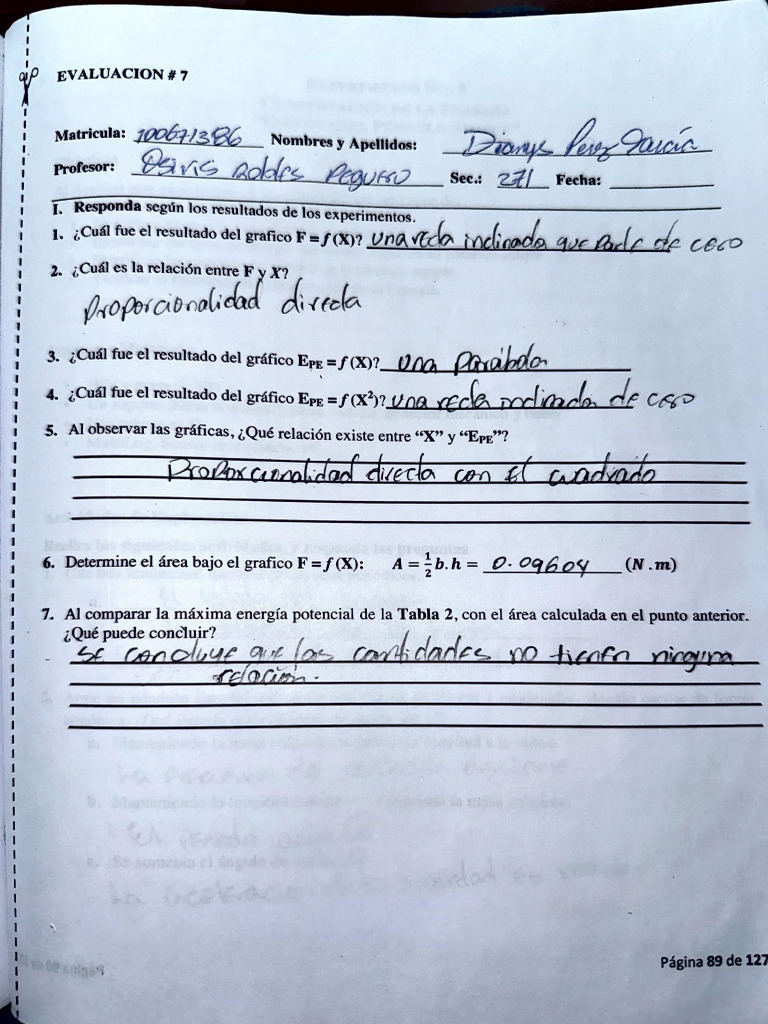 EVALUACION # 7
Matricula: 100671386 Nombres y Apellidos: Dianys Perez García
Profesor: Osiris Robles Peguero Sec.: 271 Fecha:
I. Responda según los resultados de los experimentos.
1. ¿Cuál fue el resultado del grafico F = f (X)? una recta inclinada que parte de cero
2. ¿Cuál es la relación entre F y X?
Proporcionalidad directa
3. ¿Cuál fue el resultado del gráfico EPE = f (X)? una Parábola
4. ¿Cuál fue el resultado del gráfico EPE = f (X²)? una recta inclinada de cero
5. Al observar las gráficas, ¿Qué relación existe entre “X” y “EPE”?
Proporcionalidad directa con el cuadrado
6. Determine el área bajo el grafico F = f (X): A = 1/2 b. h = 0.09604 (N .m)
7. Al comparar la máxima energía potencial de la Tabla 2, con el área calculada en el punto anterior.
¿Qué puede concluir?
se concluye que las cantidades no tienen ninguna
relación.
Página 89 de 127